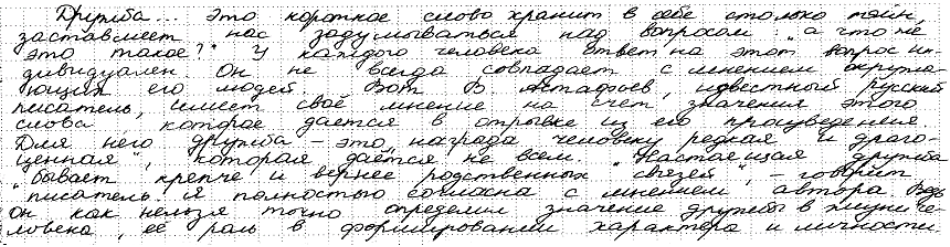 Дружба... это короткое слово хранит в себе столько тайн,
заставляет нас задумываться над вопросом: "а что же
это такое?" У каждого человека ответ на этот вопрос ин-
дивидуален. Он не всегда совпадает с мнением окружа-
ющих его людей. Вот В. Астафьев, известный русский
писатель, имеет своё мнение на счет значения этого
слова которое дается в отрывке из его произведения.
Для него дружба – это "награда человеку редкая и драго-
ценная", которая даётся не всем. "Настоящая дружба
"бывает крепче и вернее родственных связей", – говорит
писатель. Я полностью согласна с мнением автора. Ведь
он как нельзя точно определил значение дружбы в жизни че-
ловека, её роль в формировании характера и личности